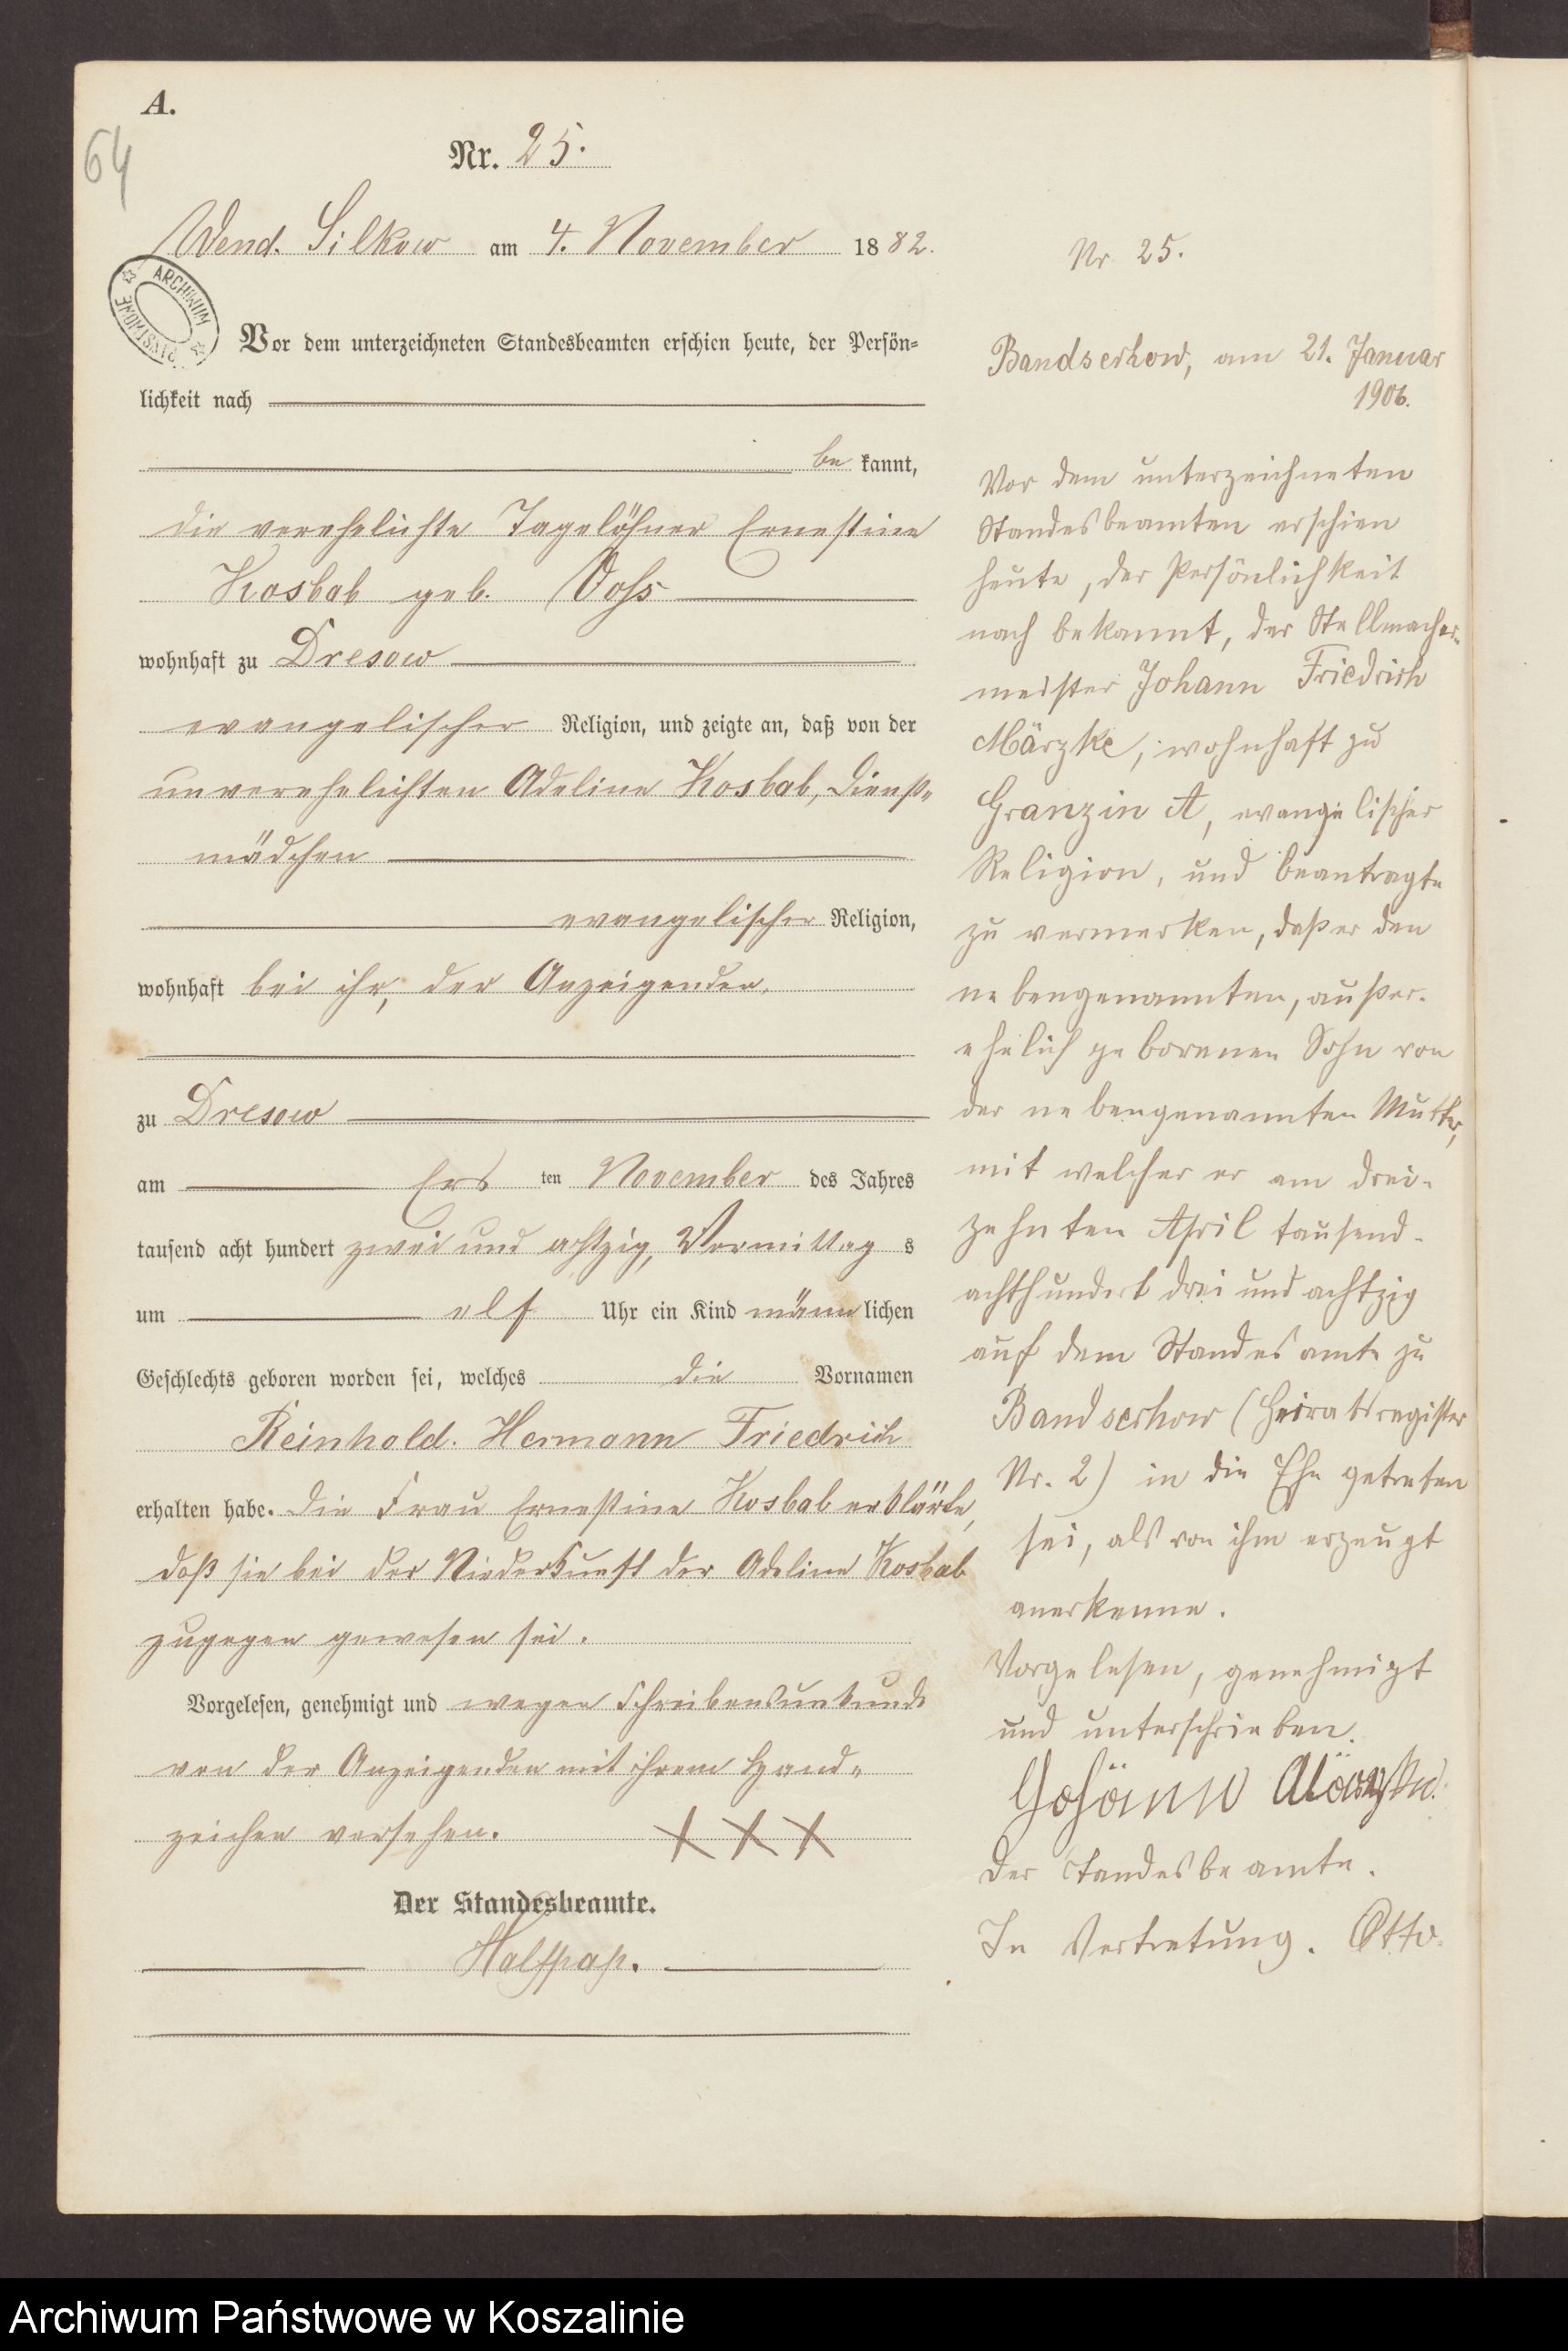 A.
64
Nr. 25.
Wend. Silkow am 4. November 1882.
ARCHIWUM
PAŃSTWOWE
Vor dem unterzeichneten Standesbeamten erschien heute, der Persön=
lichkeit nach
be kannt,
die verehelichte Tagelöhner Ernestine
Kosbab geb. Voss
wohnhaft zu Dresow
evangelischer Religion, und zeigte an, daß von der
unverehelichten Adeline Kosbab, Dienst=
mädchen
evangelischer Religion,
wohnhaft bei ihr, der Anzeigenden,
zu Dresow
am Ers ten November des Jahres
tausend acht hundert zwei und achtzig, Vormittag s
um elf Uhr ein Kind männ lichen
Geschlechts geboren worden sei, welches die Vornamen
Reinhold. Hermann Friedrich
erhalten habe. Die Frau Ernestine Kosbab erklärte,
daß sie bei der Niederkunft der Adeline Kosbab
zugegen gewesen sei.
Vorgelesen, genehmigt und wegen Schreibensunkunde
von der Anzeigenden mit ihrem Hand=
zeichen versehen. XXX
Der Standesbeamte.
Halfpap.
Nr. 25.
Bandsechow, am 21. Januar
1906.
Vor dem unterzeichneten
Standesbeamten erschien
heute, der Persönlichkeit
nach bekannt, der Stellmacher-
meister Johann Friedrich
Märzke, wohnhaft zu
Granzin A, evangelischer
Religion, und beantragte
zu vermerken, daß er den
nebengenannten, außer-
ehelich geborenen Sohn von
der nebengenannten Mutter,
mit welcher er am drei-
zehnten April tausend-
achthundert drei und achtzig
auf dem Standesamte zu
Bandsechow (Heiratsregister
Nr. 2) in die Ehe getreten
sei, als von ihm erzeugt
anerkenne.
Vorgelesen, genehmigt
und unterschrieben.
Johann Märzke.
Der Standesbeamte.
In Vertretung. Otto.
Archiwum Państwowe w Koszalinie